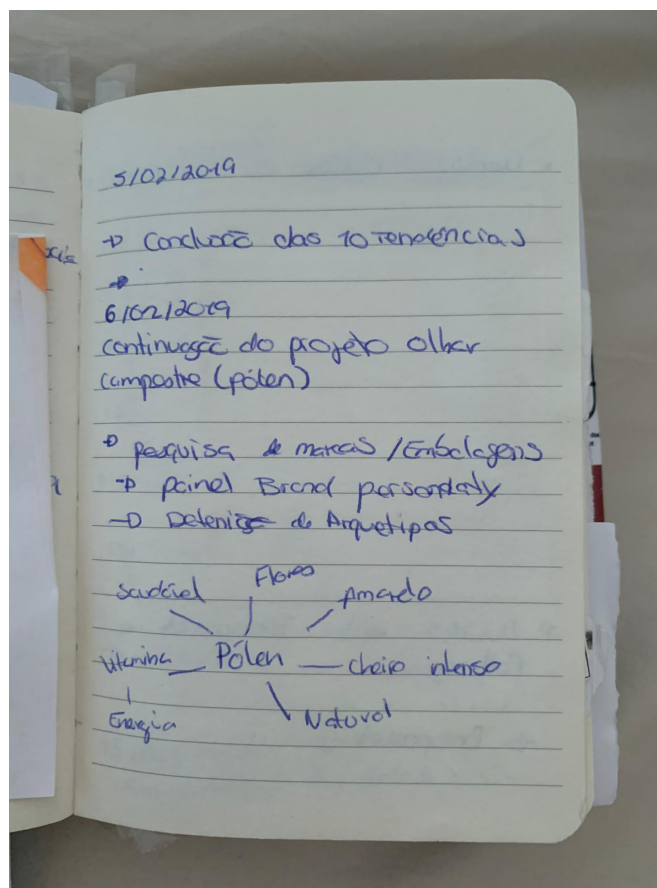 5/02/2019
→ Conclusão das 10 Tendências
→
6/02/2019
continuação do projeto olhar
campestre (pólen)
→ pesquisa de marcas / Embalagens
→ painel Brand personality
→ Definição de Arquetipos
Saudável Flores Amarelo
Vitamina Pólen cheiro intenso
Energia Natural